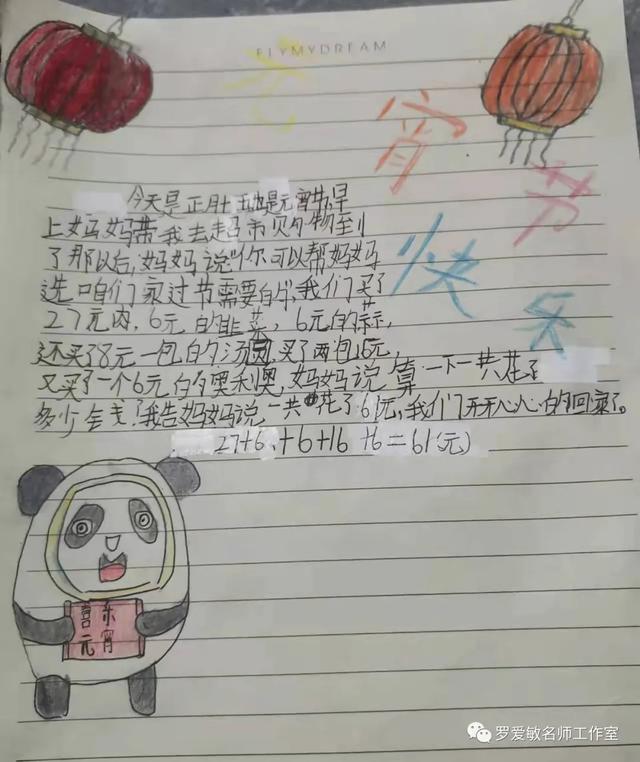 FLYMYDREAM
元宵节快乐
今天是正月十五也是元宵节,早
上妈妈带我去超市购物到
了那以后,妈妈说"你可以帮妈妈
选咱们家过节需要的",我们买了
27元肉,6元的韭菜,6元的蒜,
还买了8元一包的汤圆,买了两包16元,
又买了一个6元的奥利奥,妈妈说算一下一共花了
多少金钱?我告妈妈说一共花了61元,我们开开心心的回家了。
27+6+6+16+6=61(元)
喜乐
元宵
罗爱敏名师工作室